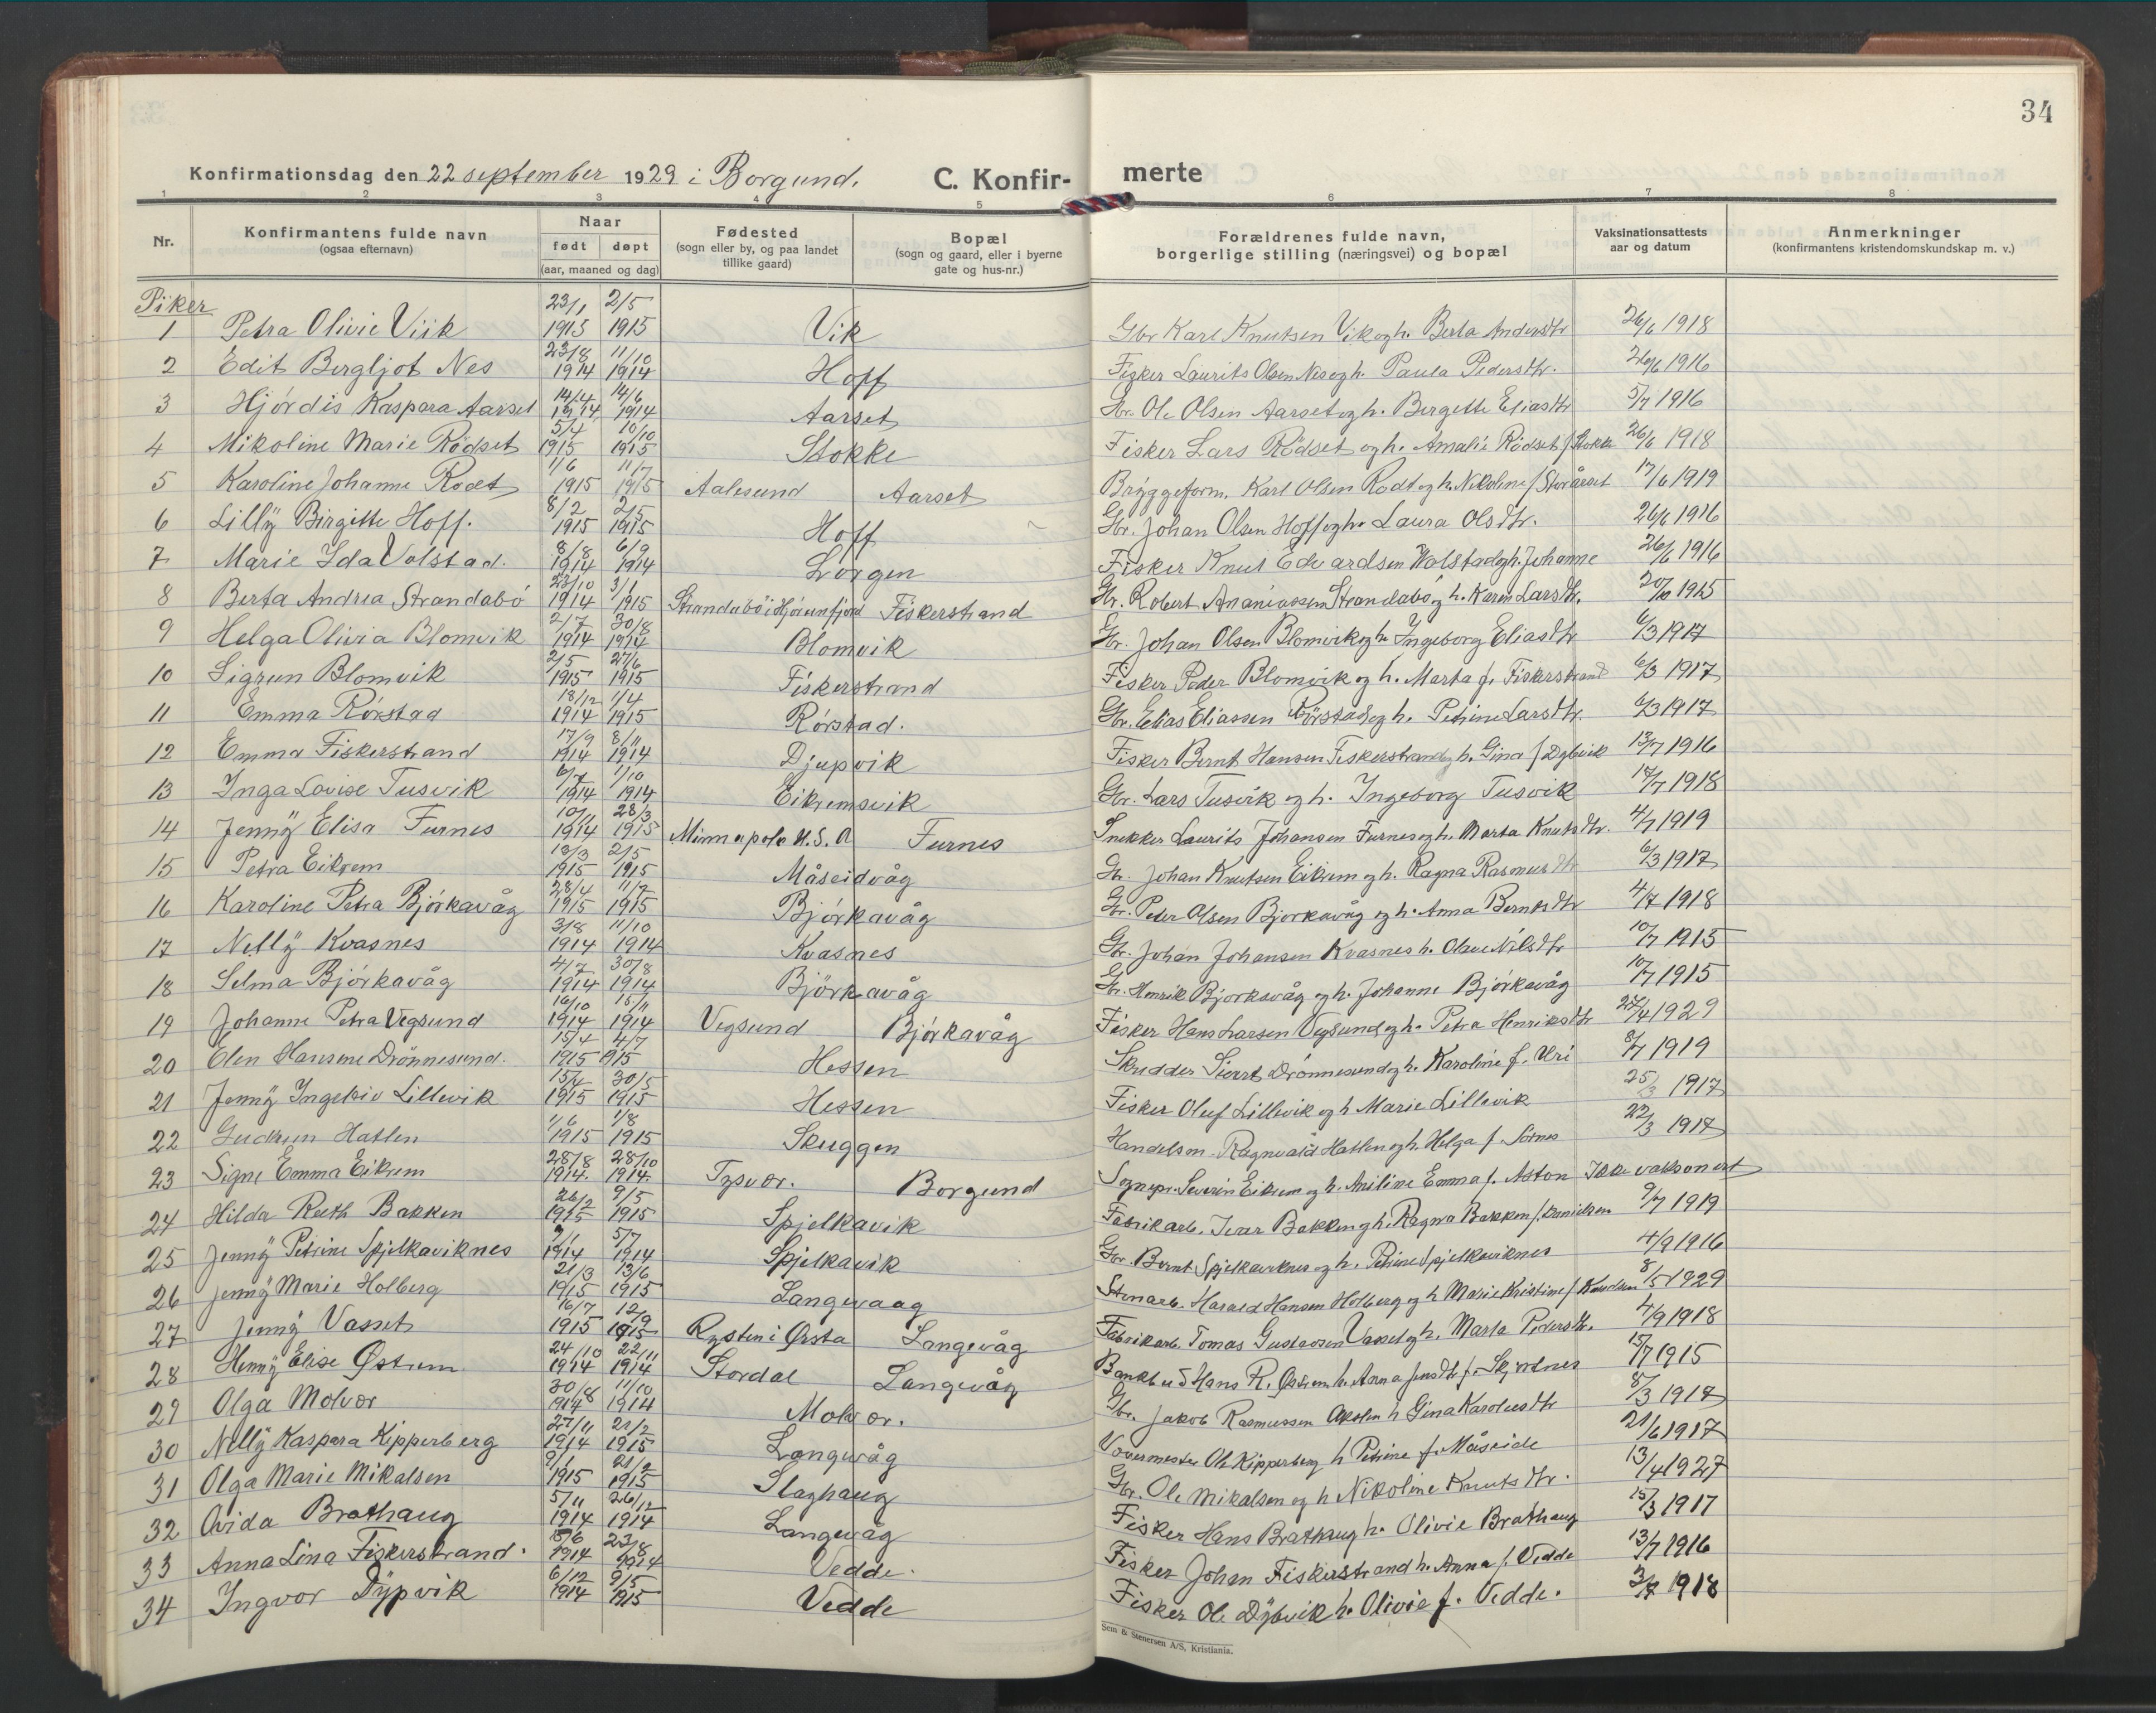 34
Konfirmationsdag den 22 september 1929 i Borgund. C. Konfir- merte
1 2 3 4 5 6 7 8
Nr. Konfirmantens fulde navn (ogsaa efternavn) Naar født døpt (aar, maaned og dag) Fødested (sogn eller by, og paa landet tillike gaard) Bopæl (sogn og gaard, eller i byerne gate og hus-nr.) Forældrenes fulde navn, borgerlige stilling (næringsvei) og bopæl Vaksinationsattests aar og datum Anmerkninger (konfirmantens kristendomskundskap m. v.)
Piker
1 Petra Olivie Viik 23/1 1915 2/5 1915 Vik Gbr Karl Knutsen Vik og h. Berta Andersdtr 26/6 1918
2 Edit Bergljot Nes 23/8 1914 11/10 1914 Hoff Fisker Laurits Olsen Nes og h. Paula Pedersdtr. 26/6 1916
3 Hjördis Kaspara Aarset 14/4 1914 14/6 1914 Aarset Gbr. Ole Olsen Aarset og h. Bergette Eliasdtr 5/7 1916
4 Mikoline Marie Rödset 5/4 1915 10/10 1915 Stokke Fisker Lars Rödset og h. Amalie Rödset f. Stokke 26/6 1918
5 Karoline Johanne Rödt 1/6 1915 11/7 1915 Aalesund Aarset Bryggeform. Karl Olsen Rödt og h. Nikoline f. Storårset 17/6 1919
6 Lillÿ Birgitte Hoff. 8/2 1915 2/5 1915 Hoff Gbr. Johan Olsen Hoff og h. Laura Olsdtr. 26/6 1916
7 Marie Ida Volstad. 8/8 1914 6/9 1914 Lörgen Fisker Knut Edvardsen Wolstad og h. Johanne 26/6 1916
8 Berta Andrea Strandabö 23/10 1914 3/1 1915 Strandabö i Hjörunfjord Fiskerstrand Gbr. Robert Ananiassen Strandabö og h. Karen Larsdtr. 20/10 1915
9 Helga Olivia Blomvik 2/7 1914 30/8 1914 Blomvik Gbr. Johan Olsen Blomvik og h. Ingeborg Eliasdtr 6/3 1917
10 Sigrun Blomvik 2/5 1915 27/6 1915 Fiskerstrand Fisker Peder Blomvik og h. Marta f. Fiskerstrand 6/3 1917
11 Emma Rörstad 18/12 1914 1/4 1915 Rörstad. Gbr. Elias Eliassen Rörstad og h. Petrine Larsdtr. 6/3 1917
12 Emma Fiskerstrand 17/9 1914 8/11 1914 Djupvik Fisker Bernt Hansen Fiskerstrand og h. Gina f. Dybvik 13/7 1916
13 Inga Lovise Tusvik 6/7 1914 1/10 1914 Eikremsvik Gbr. Lars Tusvik og h. Ingeborg Tusvik 17/7 1918
14 Jennÿ Elisa Furnes 10/11 1914 28/3 1915 Minnapolo U.S.A Furnes Snekker Laurits Johansen Furnes og h. Marta Knutsdtr. 4/7 1919
15 Petra Eikrem 13/3 1915 2/5 1915 Måseidvåg Gbr. Johan Knutsen Eikrem og h. Ragna Rasmusdtr 6/3 1917
16 Karoline Petra Björkavåg 28/4 1915 11/7 1915 Björkavåg Gbr. Peter Olsen Bjorkavåg og h. Anna Berntsdtr 4/7 1918
17 Nellÿ Kvasnes 3/8 1914 11/10 1914 Kvasnes Gbr. Johan Johansen Kvasnes h. Olave Nilsdtr 10/7 1915
18 Selma Björkavåg 4/7 1914 30/8 1914 Björkavåg Gbr. Henrik Bjorkavåg og h. Johanne Björkavåg 10/7 1915
19 Johanne Petra Vegsund 16/10 1914 15/11 1914 Vegsund Björkavåg Fisker Hans Larsen Vegsund og h. Petra Henriksdtr 27/4 1929
20 Elen Hansine Drönnesund. 15/4 1915 4/7 1915 Hessen Skredder Sivert Drönnesund og h. Karoline f. Uri 8/7 1919
21 Jennÿ Ingebiv Lillevik 15/4 1915 30/5 1915 Hessen Fisker Oluf Lillevik og h Marie Lillevik 25/3 1917
22 Gudrun Hatlen 1/6 1915 1/8 1915 Skuggen Handelsm. Ragnvald Hatlen og h. Helga f. Sörnes 22/3 1917
23 Signe Emma Eikrem 28/8 1914. 28/10 1914. Tysvær. Borgund Sognepr. Severin Eikrem og h. Aniline Emma f. Aston Ikke vaksonert
24 Hilda Ruth Bakken 26/2 1915 9/5 1915 Spjelkavik Fabrikarb. Ivar Bakken og h. Ragna Bakken f. Danielsen 9/7 1919
25 Jennÿ Petrine Spjelkaviknes 9/1 1914 5/7 1914 Spjelkavik Gbr. Bernt Spjelkaviknes og h. Petrine Spjelkaviknes 4/9 1916
26 Jennÿ Marie Holberg 21/3 1915 13/6 1915 Langevaag Stenarb. Harald Hansen Holberg og h Marie Kristine f. Knudsen 8/5 1929
27 Jennÿ Vasset 16/7 1915 12/9 1915 Rysten i Ørsta Langevåg Fabrikarb. Tomas Gustavsen Vasset og h. Marta Pedersdtr. 4/9 1918
28 Hennÿ Elise Østrem 24/10 1914 22/11 1914 Stordal Langevåg Bankbud Hans R. Østrem h. Anna Jensdtr f. Skjortnes 15/7 1915
29 Olga Molvær 30/8 1914 11/10 1914 Molvær. Gbr. Jakob Rasmussen h Gina Karolusdtr 8/3 1917
30 Nellÿ Kaspara Kipperberg 27/11 1914 21/2 1915 Langevåg Vævermester Ole Kipperberg h Petrine f. Måseide 21/6 1917
31 Olga Marie Mikalsen 9/1 1915 21/2 1915 Slaghaug Gbr. Ole Mikalsen og h Nikoline Knutsdtr. 13/4 1927
32 Ovida Brathaug 5/11 1914 26/12 1914 Langevåg Fisker Hans Brathaug h. Olivie Brathaug 15/3 1917
33 Anna Lina Fiskerstrand. 15/6 1914 23/8 1914 Vedde. Fisker Johan Fiskerstrand h. Anna f. Vedde 13/7 1916
34 Ingvor Dÿpvik 6/12 1914 9/5 1915 Vedde Fisker Ole Dÿbvik h. Olivie f. Vedde. 3/7 1918
Sem & Stenersen A/S, Kristiania.